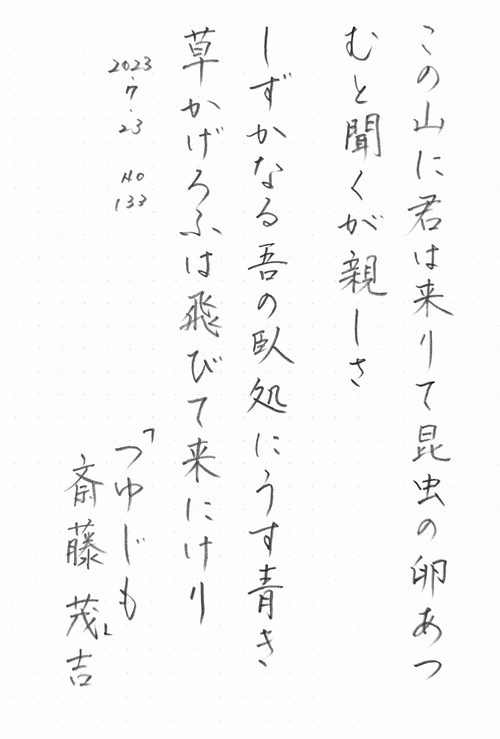 この山に君は来りて昆虫の卵あつ
むと聞くが親しさ
しずかなる吾の臥処にうす青き
草かげろふは飛びて来にけり
2023
・7
・23
No
133
「つゆじも」
斎藤茂吉